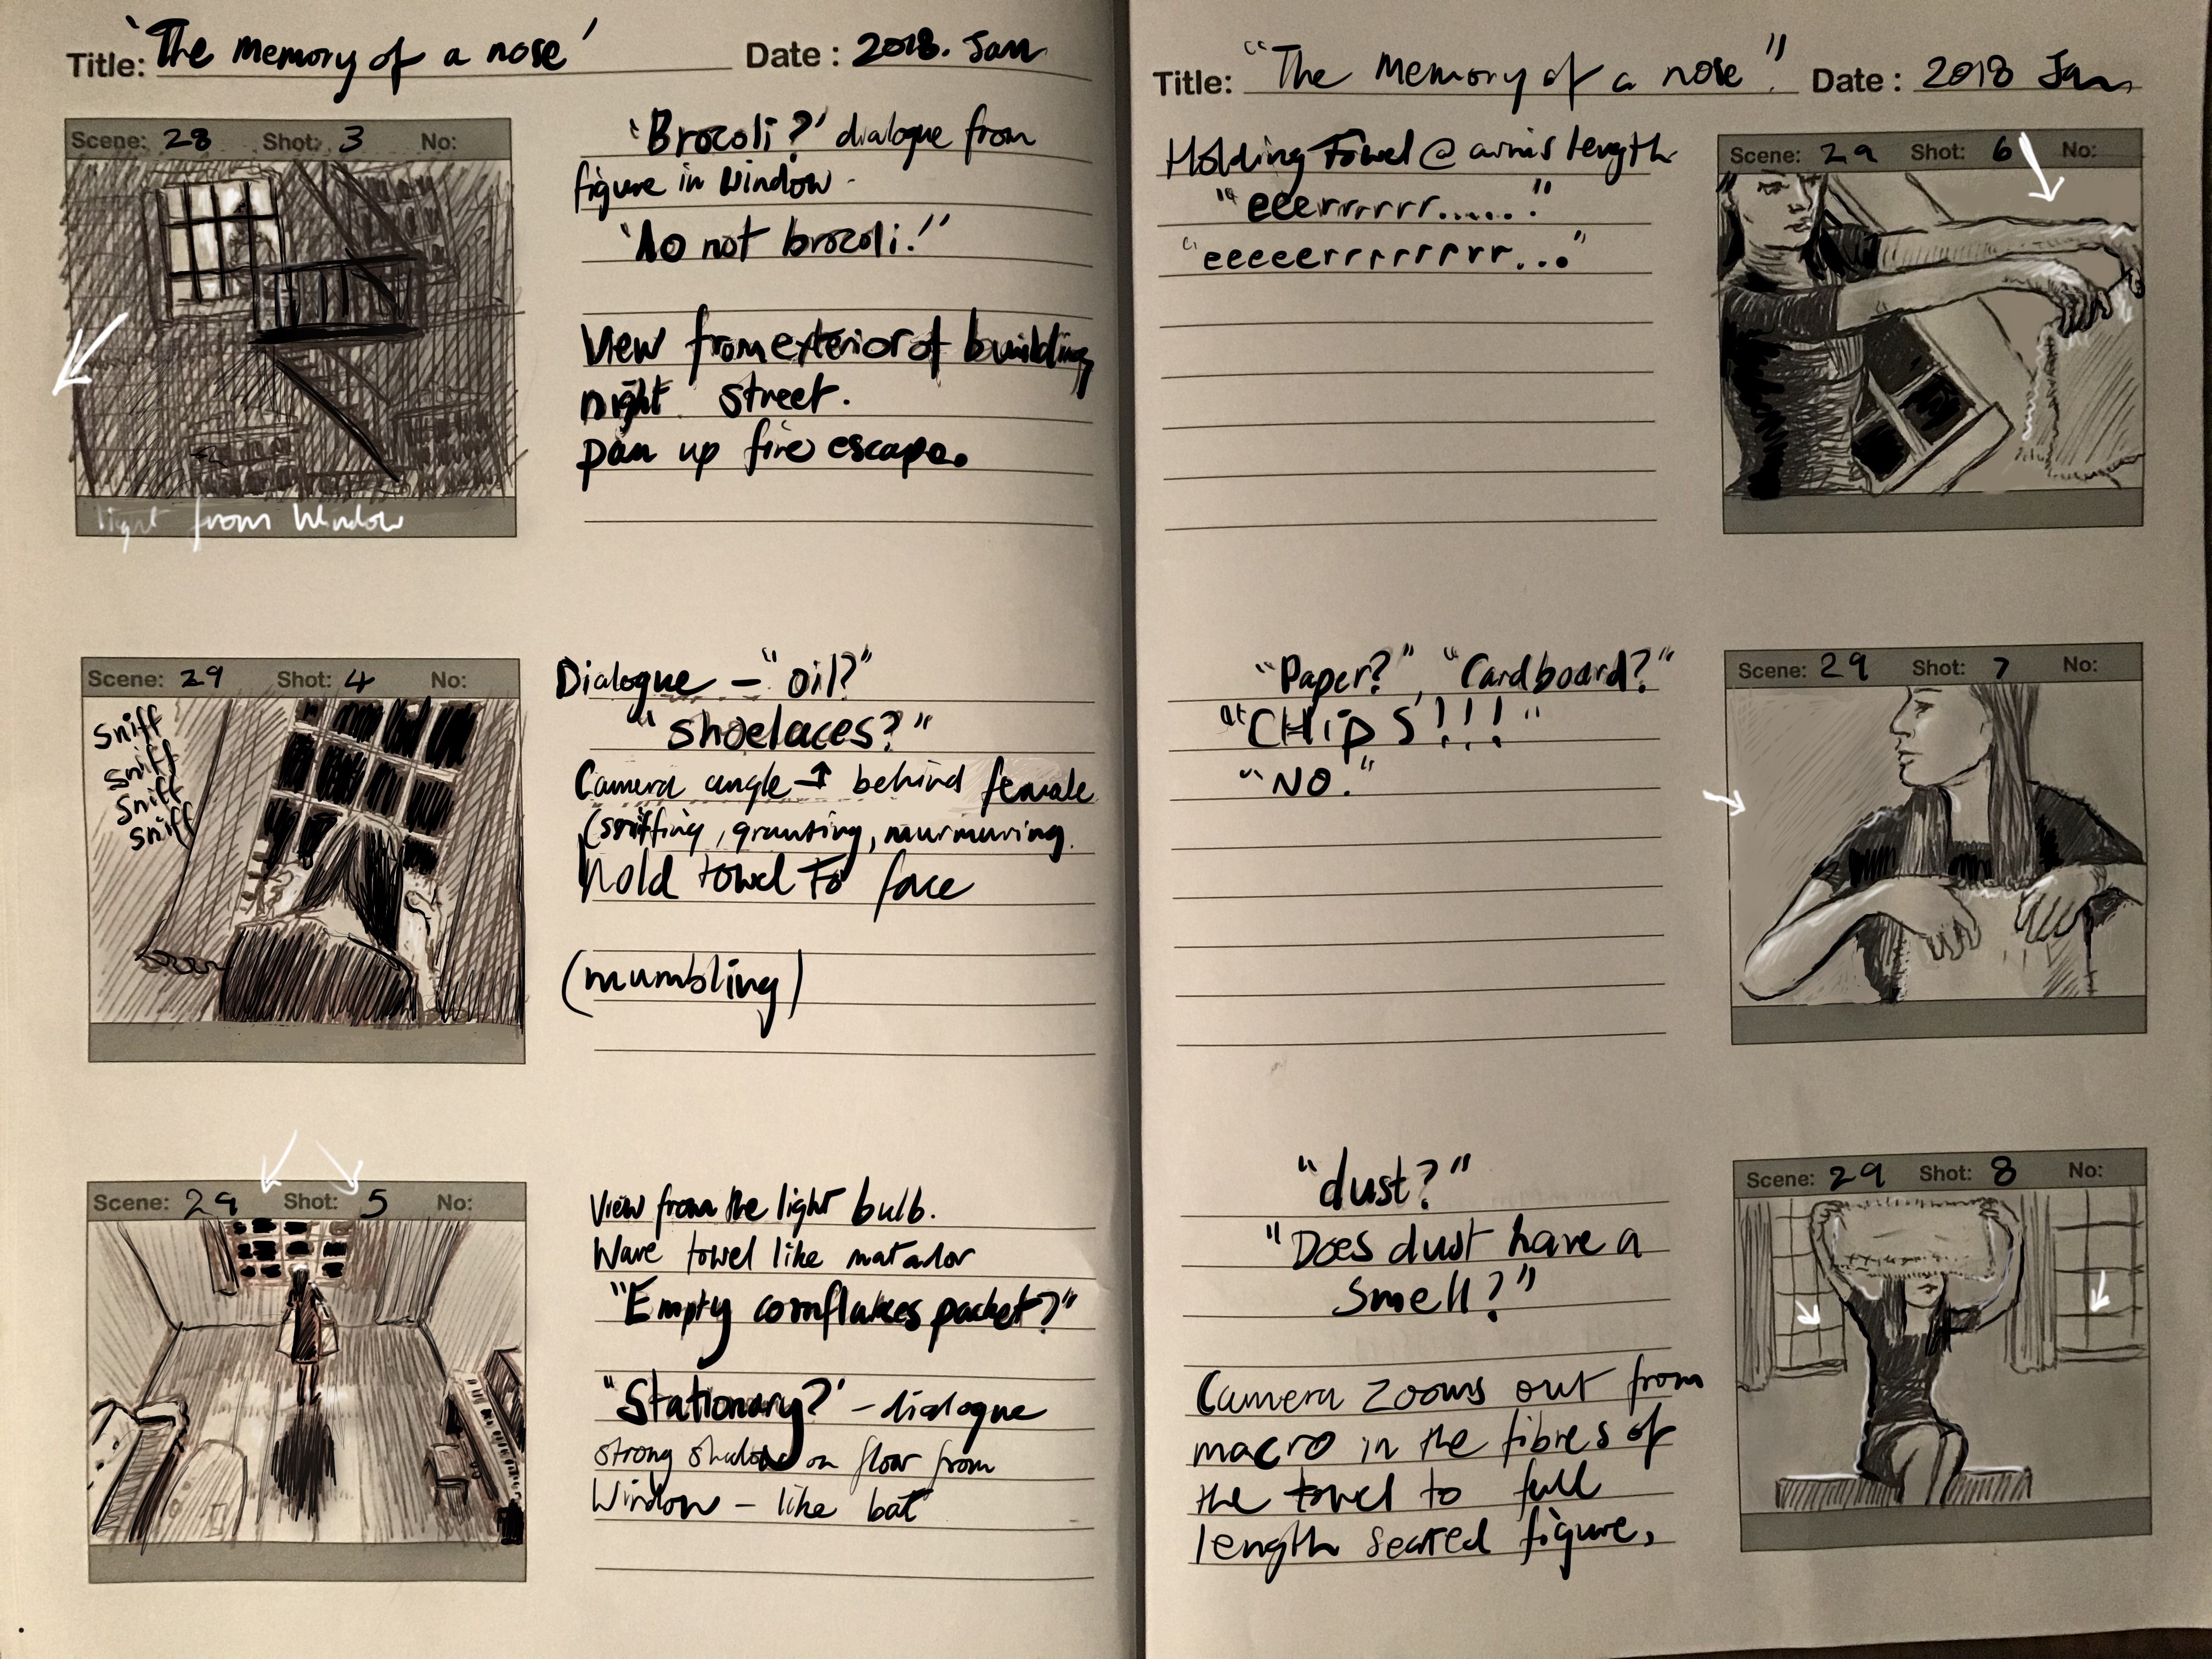 Title: 'The memory of a nose'
Date : 2018. Jan
Scene: 28 Shot: 3 No:
light from Window
'Brocoli?' dialogue from
figure in window -
'No not brocoli!'
View from exterior of building
night street.
pan up fire escape.
Scene: 29 Shot: 4 No:
Sniff
Sniff
Sniff
Sniff
Dialogue - "oil?"
"shoelaces?"
Camera angle → behind female
(sniffing, grunting, murmuring.
hold towel To face
(mumbling)
Scene: 29 Shot: 5 No:
View from the light bulb.
Wave towel like matador
"Empty cornflakes packet?"
"Stationary?' - dialogue
strong shadow on floor from
Window - like bat
Title: "The Memory of a nose"
Date : 2018 Jan
Holding Towel @ arms length
"eeerrrrrr......"
"eeeeerrrrrrrrr..."
Scene: 29 Shot: 6 No:
"Paper?", "Cardboard?"
"CHIPS!!!"
"NO."
Scene: 29 Shot: 7 No:
"dust?"
"Does dust have a
smell?"
Camera zooms out from
macro in the fibres of
the towel to full
length seated figure,
Scene: 29 Shot: 8 No: